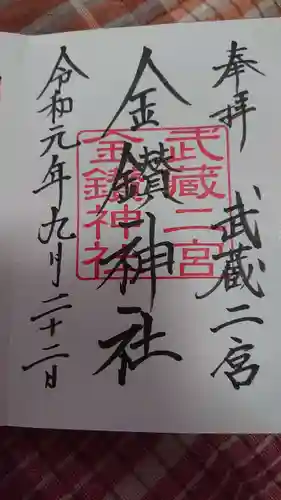 奉拝
武蔵二宮
金鑚神社
令和元年九月二十二日
武蔵二宮
金鑚神社